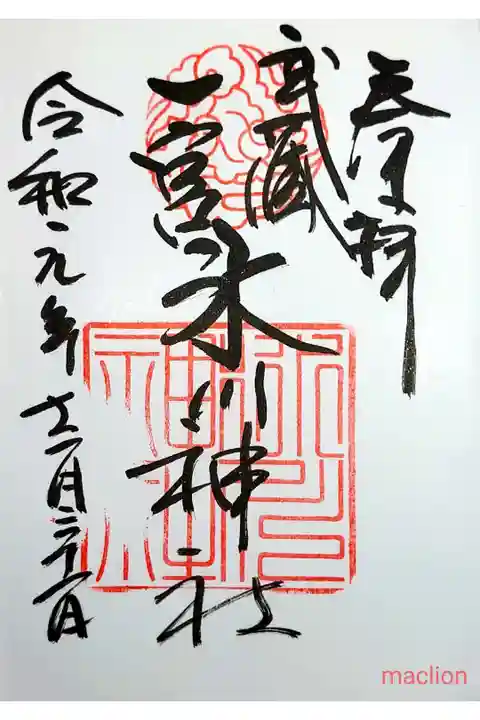 奉拝
武蔵
一宮氷川神社
令和元年
氷川
神社
maclion